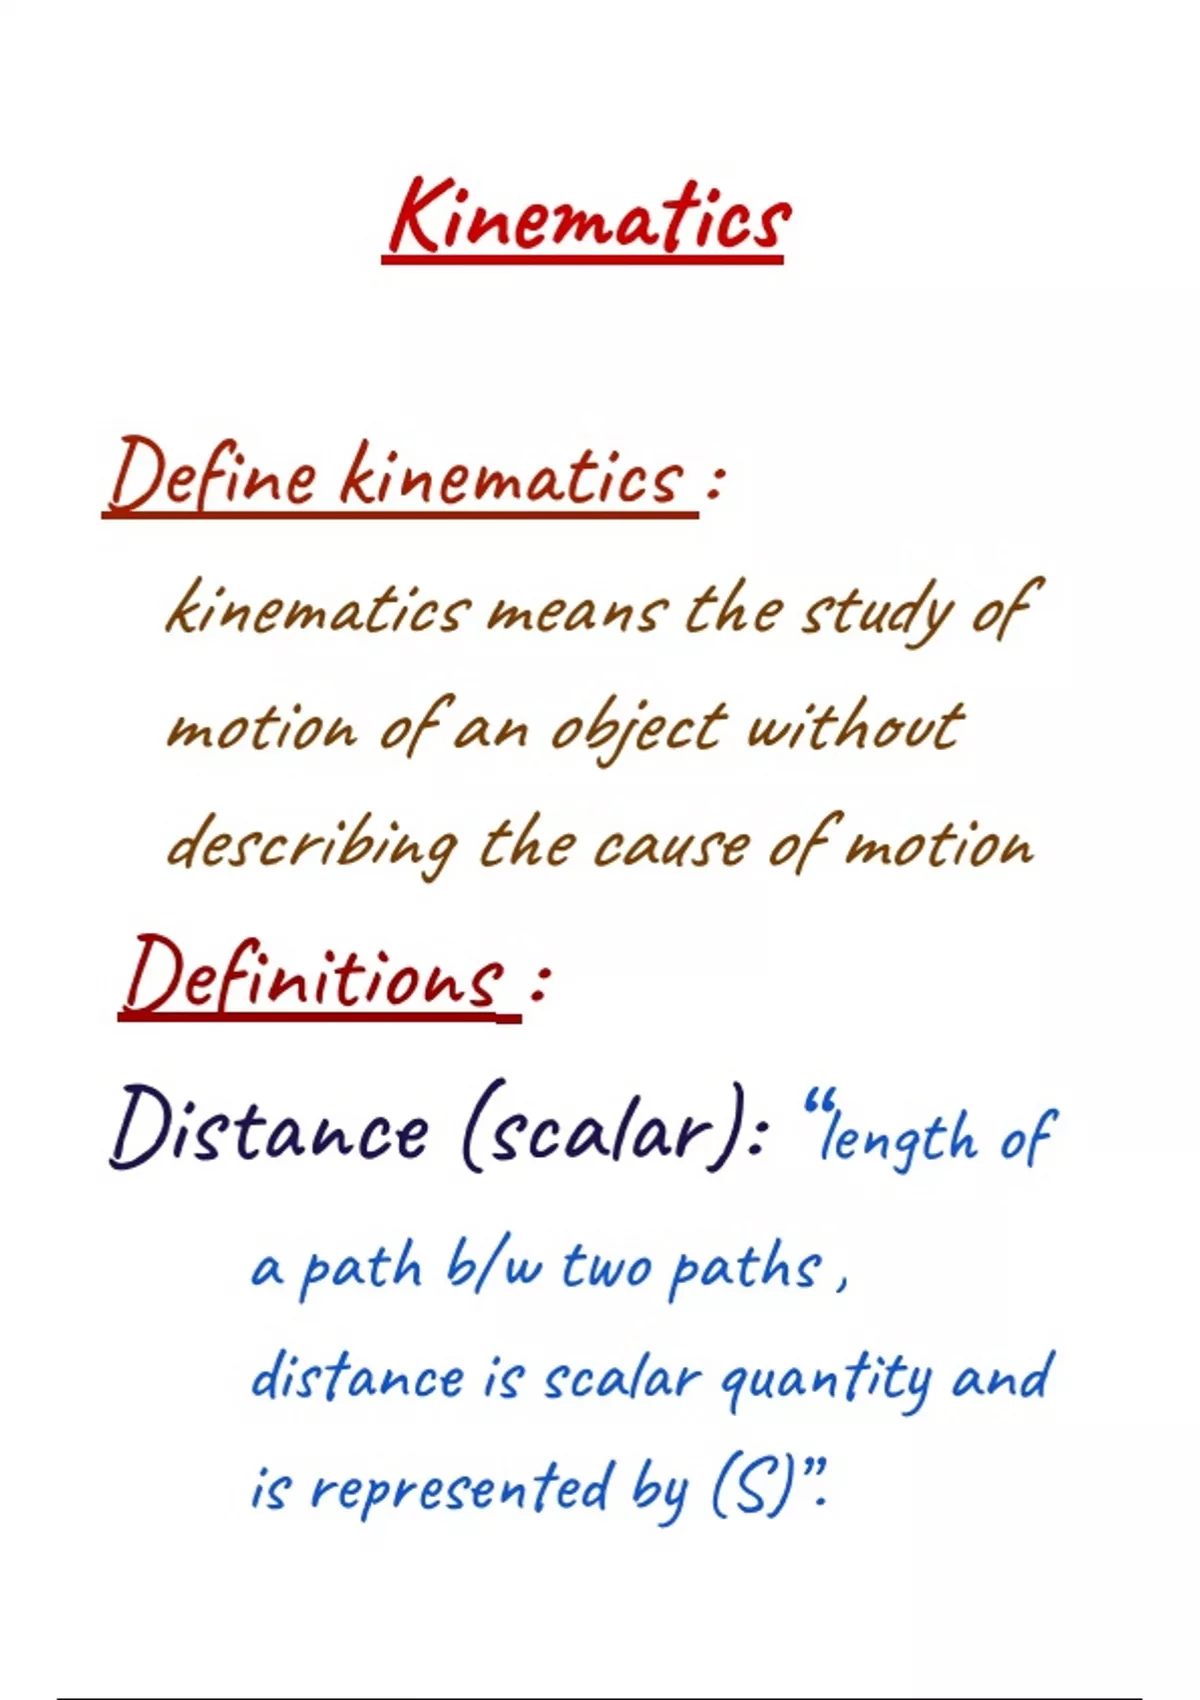 Kinematics
Define kinematics :
kinematics means the study of
motion of an object without
describing the cause of motion
Definitions :
Distance (scalar): “length of
a path b/w two paths ,
distance is scalar quantity and
is represented by (S)”.